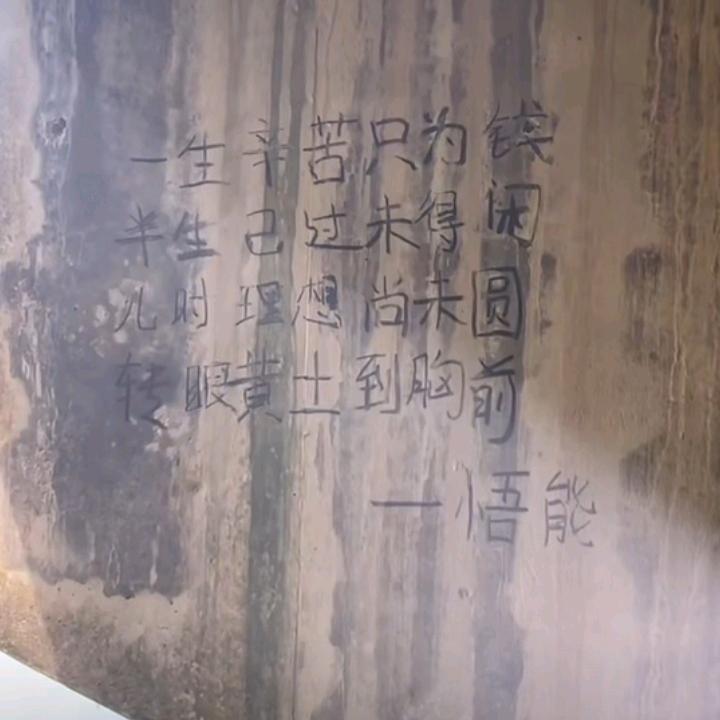 一生辛苦只为钱
半生已过未得闲
儿时理想尚未圆
转眼黄土到胸前
—悟能